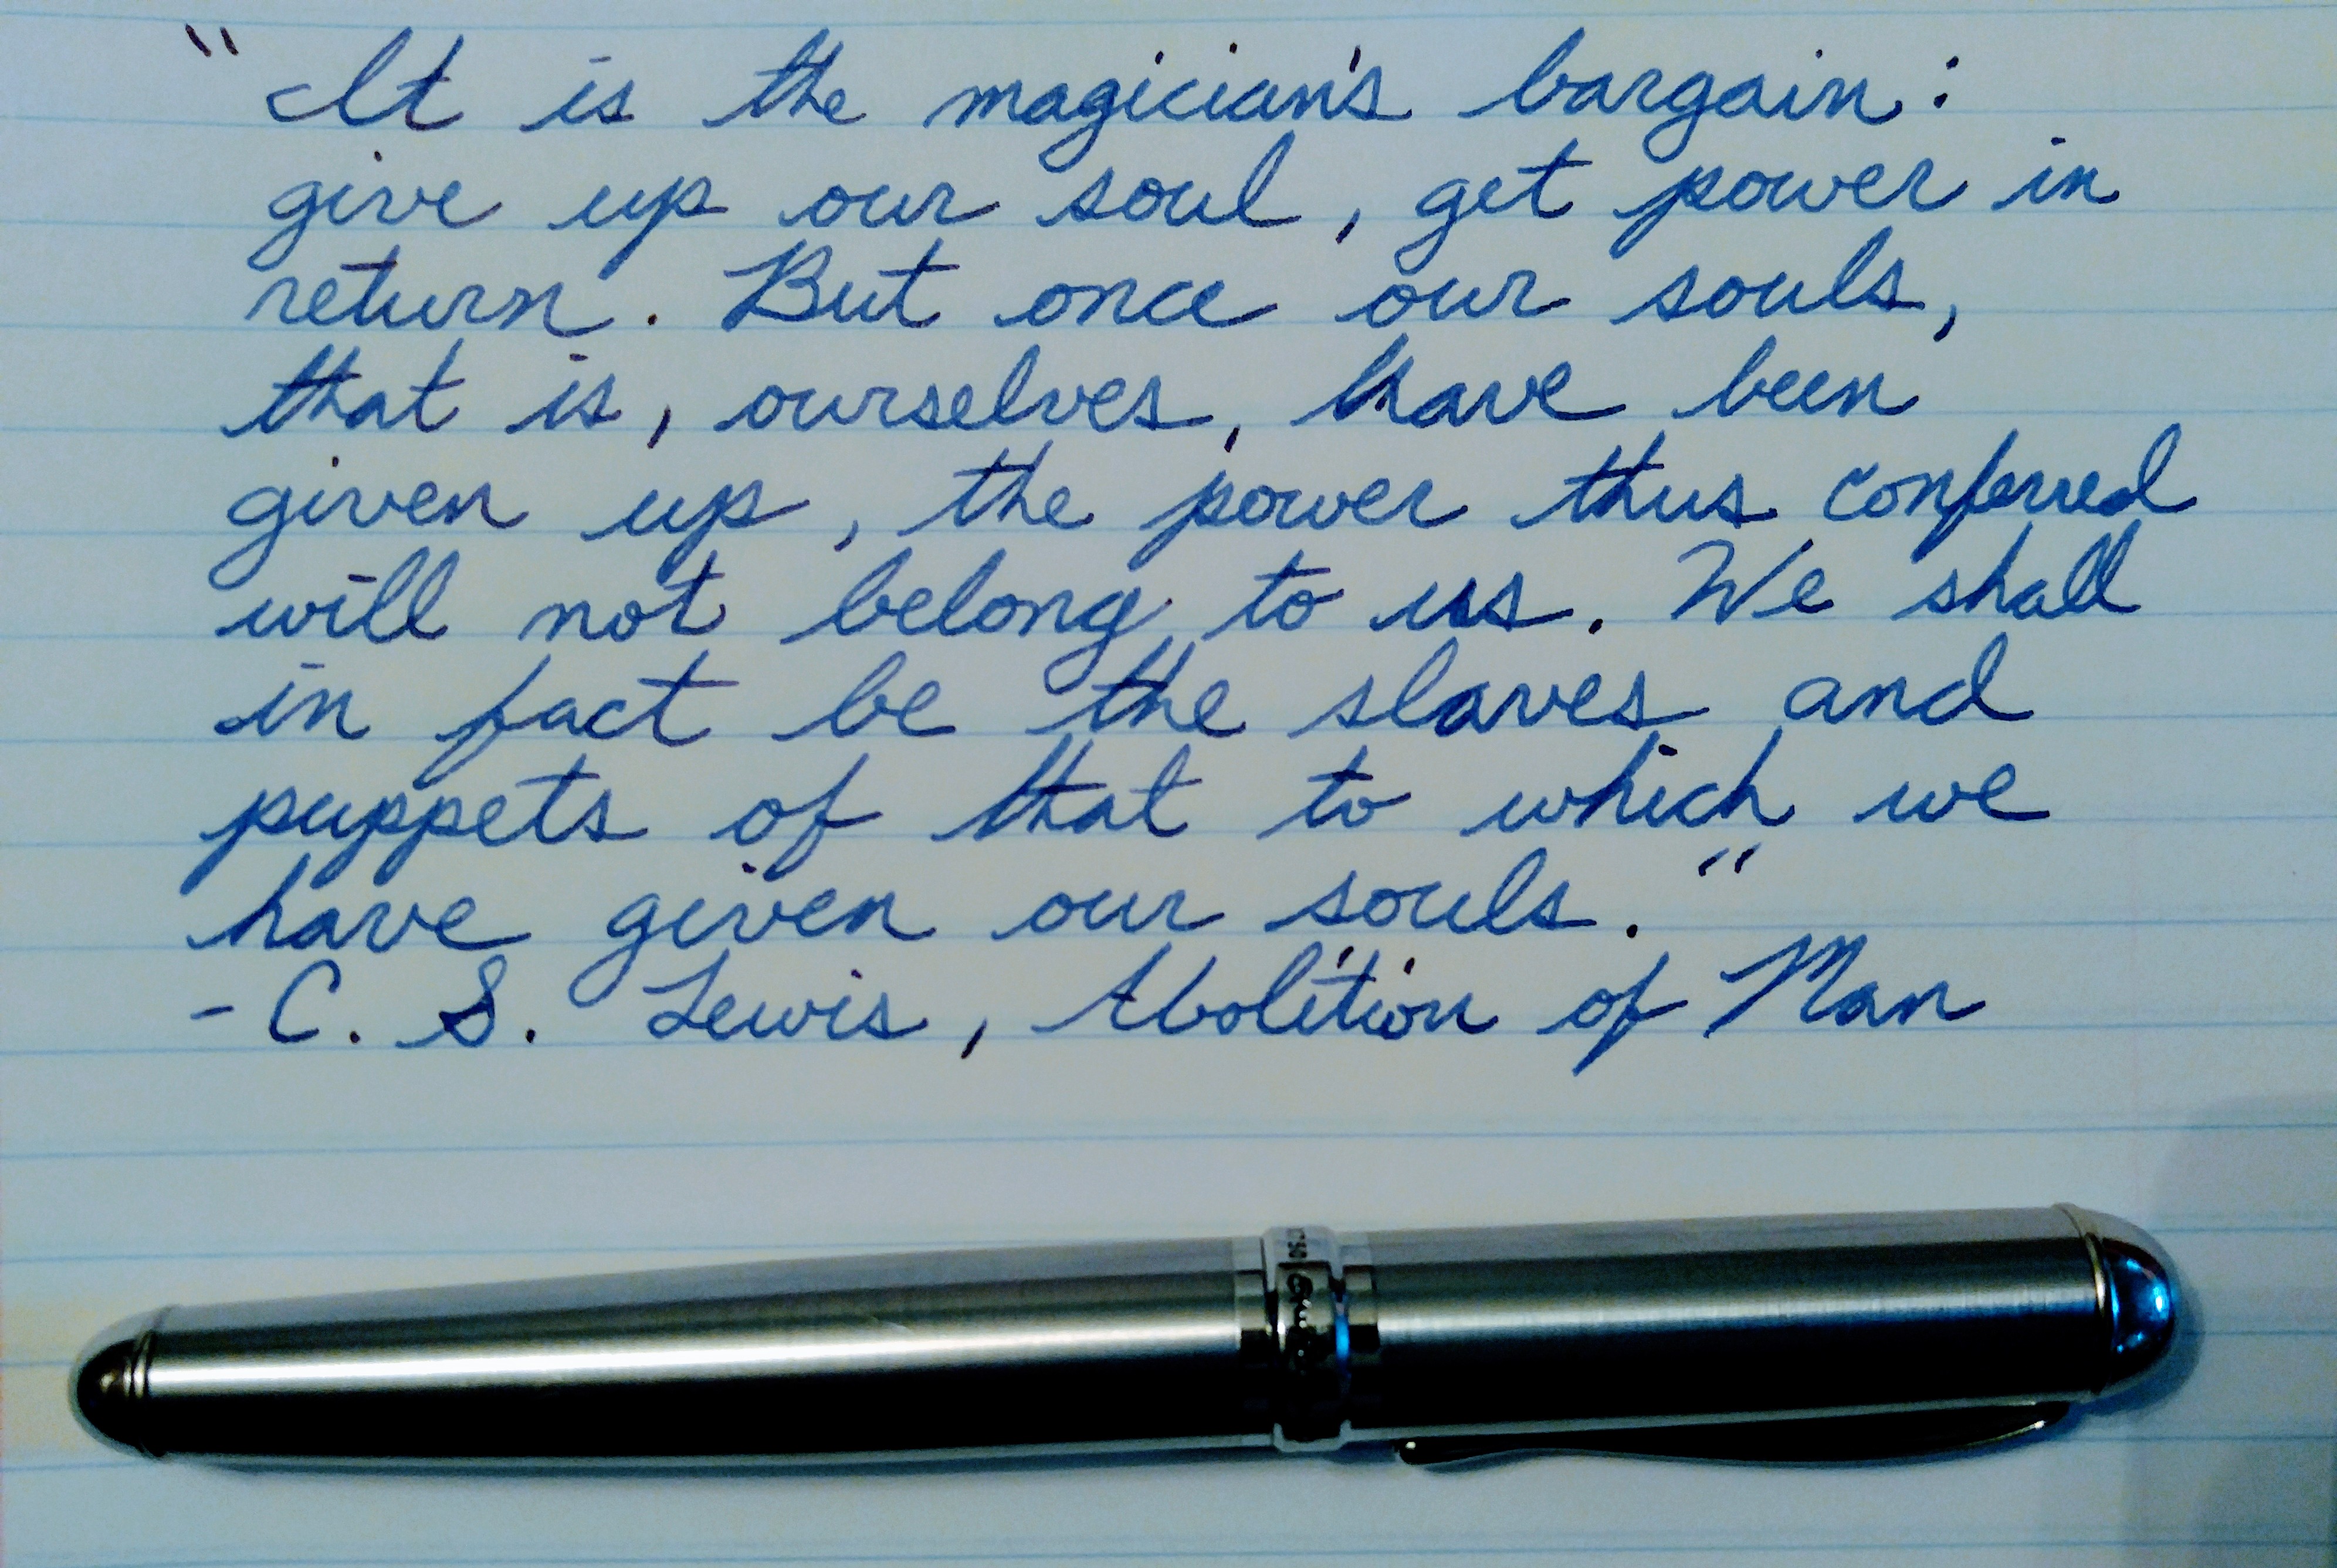 "It is the magician's bargain:
give up our soul, get power in
return. But once our souls,
that is, ourselves, have been
given up, the power thus conferred
will not belong to us. We shall
in fact be the slaves and
puppets of that to which we
have given our souls."
- C. S. Lewis, Abolition of Man